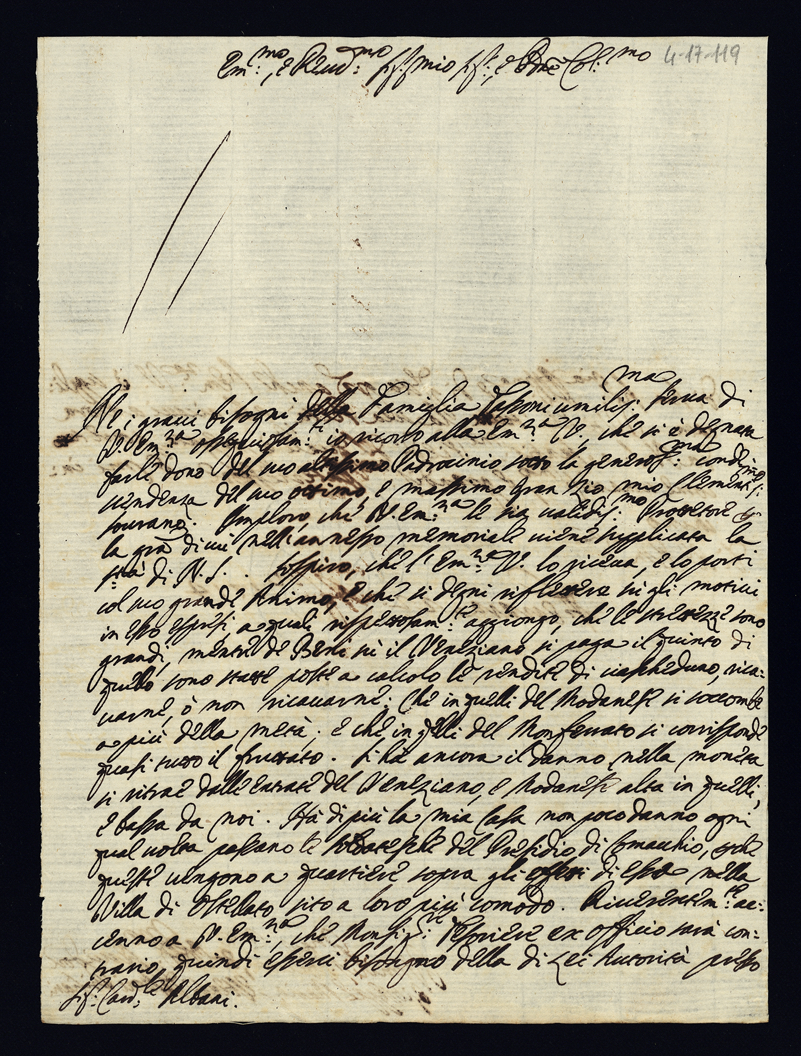 Em:mo, e Reud:mo Sig:r mio Sig:r, e Pdne Col:mo 4-17-119
Ne i graui bisogni della Famiglia Tassoni umilis:ma serua di
V. Em:za ossequiosam:te io ricorro alla Em:za V., che si è degnata
farle dono del suo altissimo Padrocinio sotto la generos:ma condi-
scendenza del suo ottimo, e massimo Gran Zio mio Clementis:mo
sourano. Imploro, che V. Em:za le sia validis:mo Protettore
la gra di cui nell'annesso memoriale uiene supplicata la
S:tà di N. S. Sospiro, che l'Em:za V. lo riceua, e lo porti
col suo grande Animo, e che si degni riflettere su gli motiui
in esso espressi, a quali rispettosam:te aggiongo, che le strettezze sono
grandi, mentre de Beni sù il Veneziano si paga il quinto di
quello sono state poste a calcolo le rendite di ciascheduno, rica-
uarne, ò non ricauarne; che in quelli del Modanese si soccombe
a più della metà; e che in q:lli del Monferrato si corrisponde
quasi tutto il fruttato. Si hà ancora il danno nella moneta
si ritrae dalle entrate del Veneziano, e Modanese alta in quelli,
è bassa da noi. Hà di più la mia Casa non poco danno ogni
qual uolta passano le soldatesche del Presidio di Comacchio, che
queste uengono a quartiere sopra gli effetti di essa nella
Villa di Ostellato sito a loro più comodo. Riuerentem:te ac-
cenno a V. Em:za, che Monsig:re Tesoriere ex officio sarà con-
trario, quindi esserui bisogno della di Lei Autorità presso
Sig:r Card:le Albani.